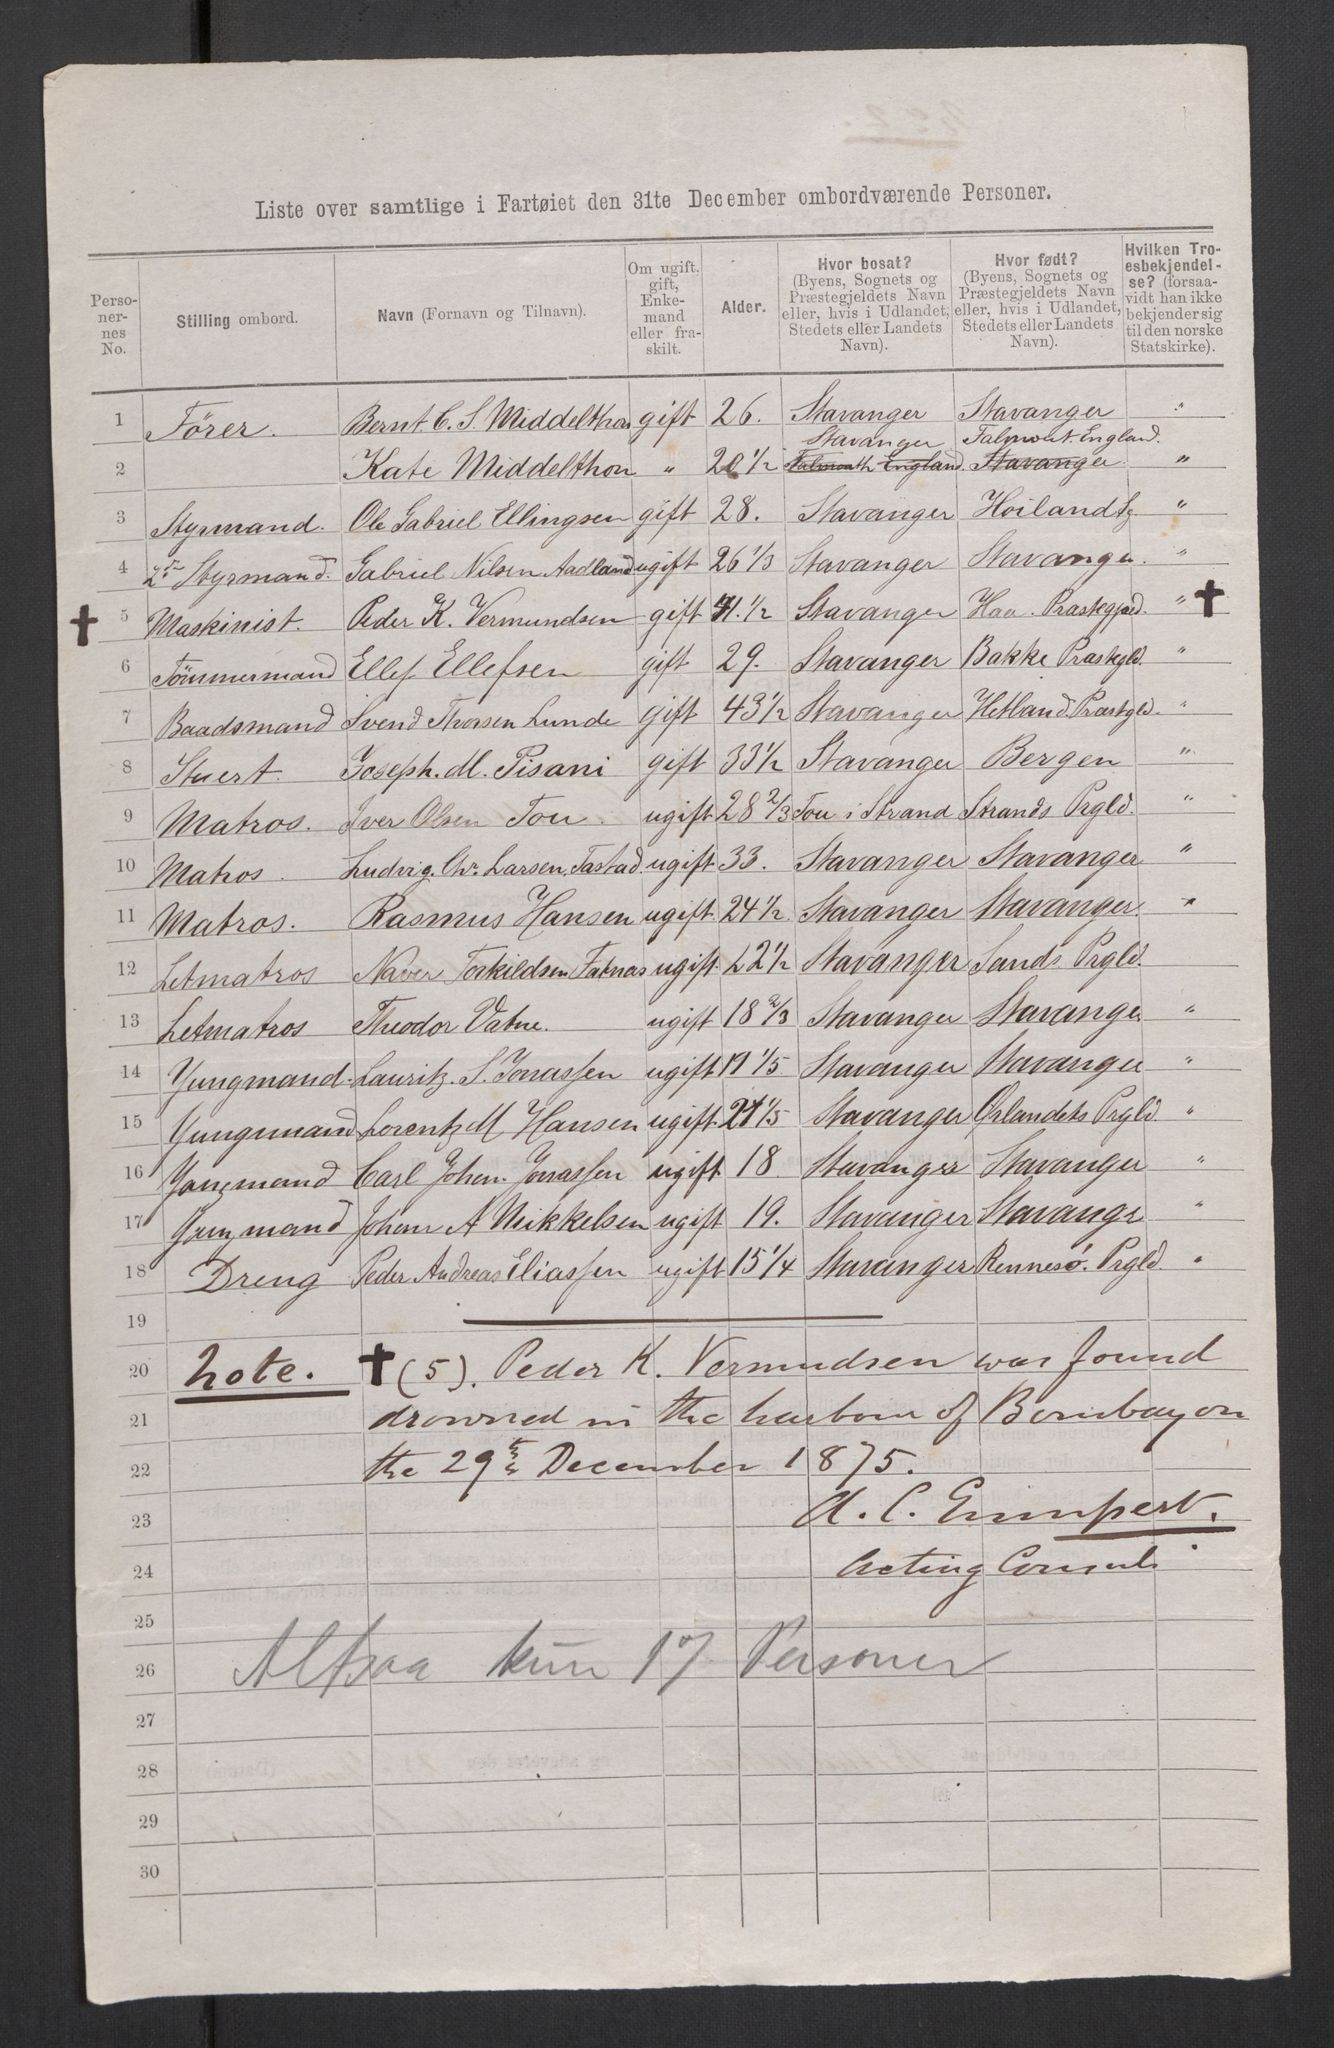 Liste over samtlige i Fartøiet den 31te December ombordværende Personer.
Perso-
ner-
nes
No.
Stilling ombord.
Navn (Fornavn og Tilnavn).
Om ugift,
gift,
Enke-
mand
eller fra-
skilt.
Alder.
Hvor bosat?
(Byens, Sognets og
Præstegjeldets Navn
eller, hvis i Udlandet,
Stedets eller Landets
Navn).
Hvor født?
(Byens, Sognets og
Præstegjeldets Navn
eller, hvis i Udlandet,
Stedets eller Landets
Navn).
Hvilken Tro-
esbekjendel-
se? (forsaa-
vidt han ikke
bekjender sig
til den norske
Statskirke).
1 Förer. Bernt. C. S. Middelthon gift 26. Stavanger Stavanger "
Stavanger Falmout England.
2 Kate Middelthon " 20 1/2 Falmouth England Stavanger "
3 Styrmand. Ole Gabriel Ellingsen gift 28. Stavanger Hoiland "
4 2den Styrmand. Gabriel Nilsen Aadland ugift 26 1/3 Stavanger Stavanger. "
✝ 5 Maskinist. Peder K. Vermundsen gift 41. 1/2 Stavanger Haa. Prastegjed. " ✝
6 Tömmermand Ellef Ellefsen gift 29. Stavanger Bakke Prastegld. "
7 Baadsmand Svend Thorsen Lunde gift 43 1/2 Stavanger Hetland. Prastgld. "
8 Stuert. Joseph. M. Pisani gift 33 1/2 Stavanger Bergen "
9 Matros. Iver Olsen Tou. ugift 28 2/3 Tou i Strand Strands Prgld. "
10 Matros. Ludvig. Chr. Larsen. Tastad ugift 33. Stavanger Stavanger "
11 Matros. Rasmus Hansen ugift. 24 1/2. Stavanger Stavanger. "
12 Letmatros Torkildsen ugift. 22 1/2 Stavanger Sands Prgld.
13 Letmatros Theodor Vatne. ugift 18 2/3 Stavanger Stavanger "
14 Yungmand. Lauritz. S. Jonassen ugift 19 1/5 Stavanger Stavanger "
15 Yungmand Lorentz M Hansen ugift. 21 1/5 Stavanger Ørlandets Prgld. "
16 Yongmand Carl Johan. Jonassen ugift 18 Stavanger Stavanger "
17 Yongmand Johan A Mikkelsen ugift 19. Stavanger Stavanger "
18 Dreng Peder Andreas Eliassen ugift 15 1/4 Stavanger Rennesö. Prgld. "
19
20 Note. ✝ (5). Peder K. Vermudsen was found
21 drowned in the harbour of Bombay on
22 the 29th December 1875.
23 A. C. Gumpert.
24 Acting Consul
25
26 Altsaa kun 17 Personer
27
28
29
30